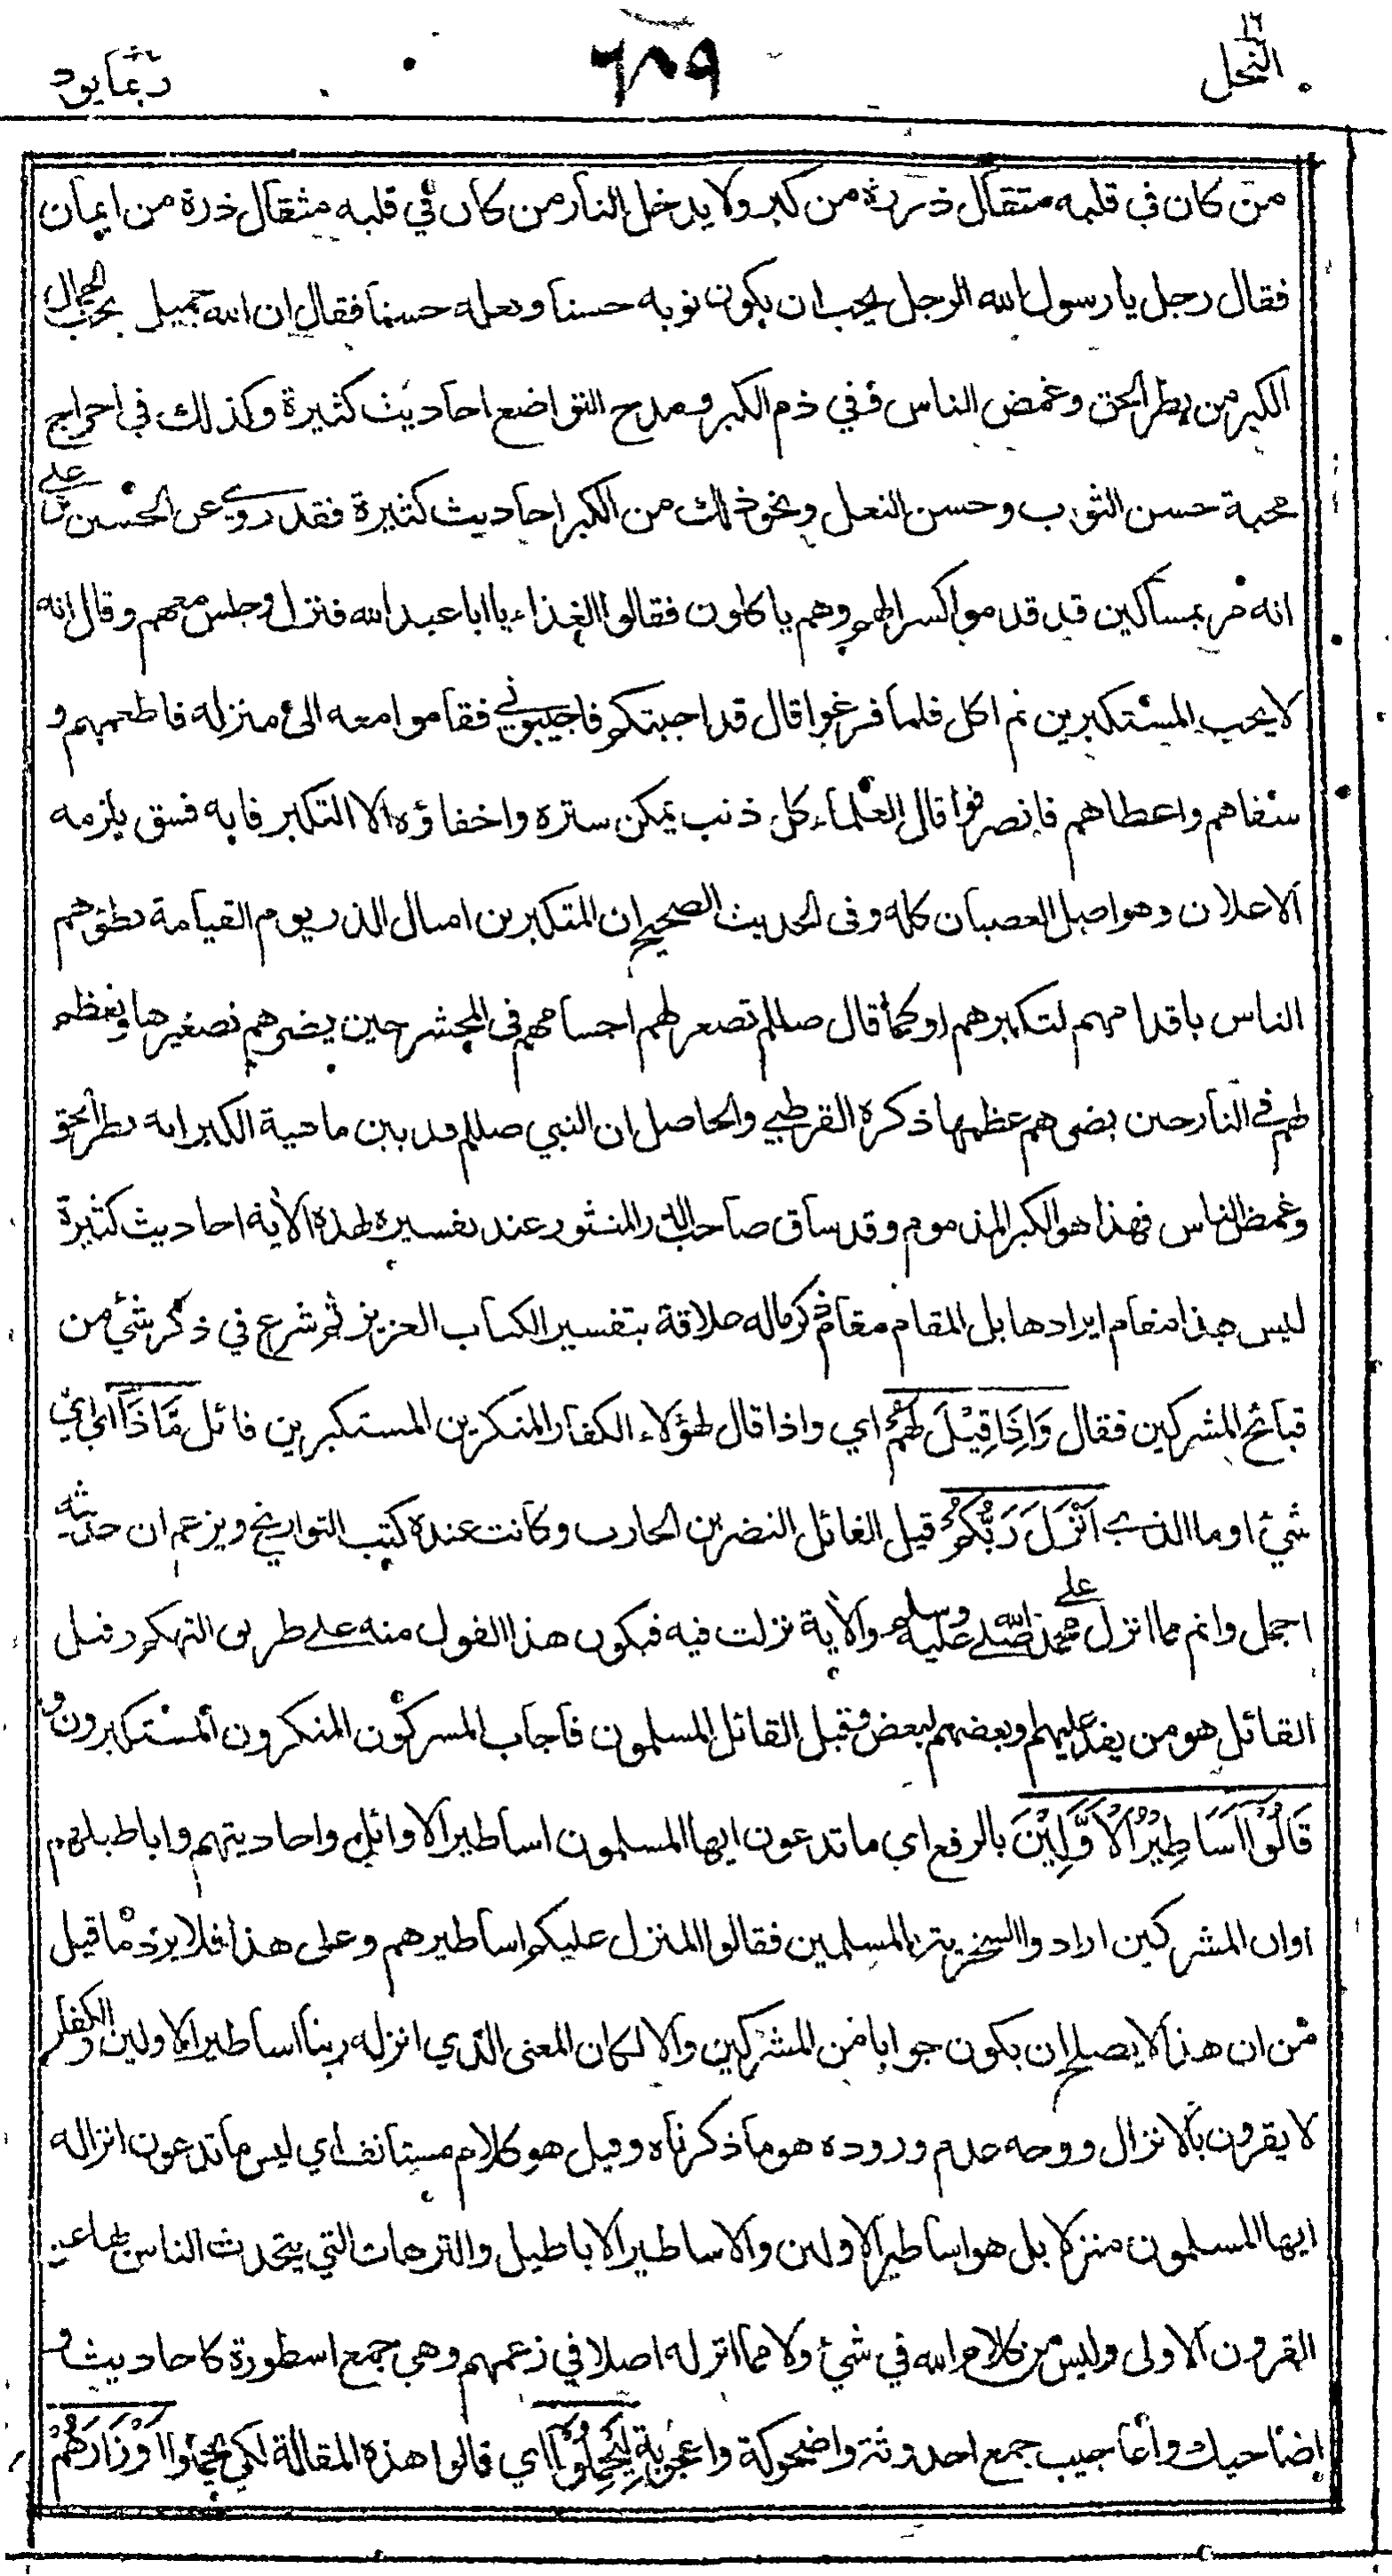 النحل ١٦
٦٨٩
ربما يود
من كان في قلبه مثقال ذرة من كبر ولا يدخل النار من كان في قلبه مثقال ذرة من ايمان
فقال رجل يا رسول الله الرجل يحب ان يكون ثوبه حسنا ونعله حسنا فقال ان الله جميل يحب الجمال
الكبر من بطر الحق وغمض الناس وفي ذم الكبر ومدح التواضع احاديث كثيرة وكذلك في اخراج
محبة حسن الثوب وحسن النعل ونحو ذلك من الكبر احاديث كثيرة فقد روي عن الحسين بن علي
انه مر بمساكين قد قدموا كسرا لهم وهم ياكلون فقالوا الغذاء يا ابا عبد الله فنزل وجلس معهم وقال انه
لا يحب المستكبرين ثم اكل فلما فرغوا قال قد اجبتكم فاجيبوني فقاموا معه الى منزله فاطعمهم و
سقاهم واعطاهم فانصرفوا قال العلماء كل ذنب يمكن ستره واخفاؤه الا التكبر فانه فسق يلزمه
الاعلان وهو اصل العصيان كله وفي الحديث الصحيح ان المتكبرين امثال الذر يوم القيامة تطؤهم
الناس باقدامهم لتكبرهم او كما قال صللم تصغر لهم اجسامهم في المحشر حين يضرهم تصغيرها وتعظم
لهم في النار حين يضرهم عظمها ذكره القرطبي والحاصل ان النبي صللم قد بين ماهية الكبر انه بطر الحق
وغمض الناس فهذا هو الكبر المذموم وقد ساق صاحب الدر المنثور عند تفسيره لهذه الأية احاديث كثيرة
ليس هذا مقام ايرادها بل المقام مقام ذكر ماله علاقة بتفسير الكتاب العزيز ثم شرع في ذكر شئ من
قبائح المشركين فقال وَاِذَا قِيْلَ لَهُمْ اي واذا قال لهؤلاء الكفار المنكرين المستكبرين قائل مَّاذَا اي اي
شئ او ما الذي اَنْزَلَ رَبُّكُمْ قيل القائل النضر بن الحارث وكانت عنده كتب التواريخ ويزعم ان حديثه
اجمل واتم مما انزل على محمد صلى الله عليه وسلم والأية نزلت فيه فيكون هذا القول منه على طريق التهكم وقيل
القائل هو من يفد عليهم وبعضهم لبعض وقيل القائل المسلمون فاجاب المشركون المنكرون المستكبرون و
قَالُوْا اَسَاطِيْرُ الْاَوَّلِيْنَ بالرفع اي ما تدعون ايها المسلمون اساطير الاوائل واحاديثهم واباطيلهم
او ان المشركين ارادوا السخرية بالمسلمين فقالوا المنزل عليكم اساطيرهم وعلى هذا فلا يرد ما قيل
من ان هذا لا يصلح ان يكون جوابا من المشركين والا لكان المعنى الذي انزله ربنا اساطير الاولين والكفار
لا يقرون بالانزال ووجه عدم وروده هو ما ذكرناه وقيل هو كلام مستانف اي ليس ما تدعون انزاله
ايها المسلمون منزلا بل هو اساطير الاولين والاساطير الاباطيل والترهات التي يتحدث الناس بها عن
القرون الاولى وليس من كلام الله في شئ ولا مما انزله اصلا في زعمهم وهي جمع اسطورة كاحاديث و
اضاحيك واعاجيب جمع احدوثة واضحوكة واعجوبة لِيَحْمِلُوْا اي قالوا هذه المقالة لكي يحملوا اَوْزَارَهُمْ